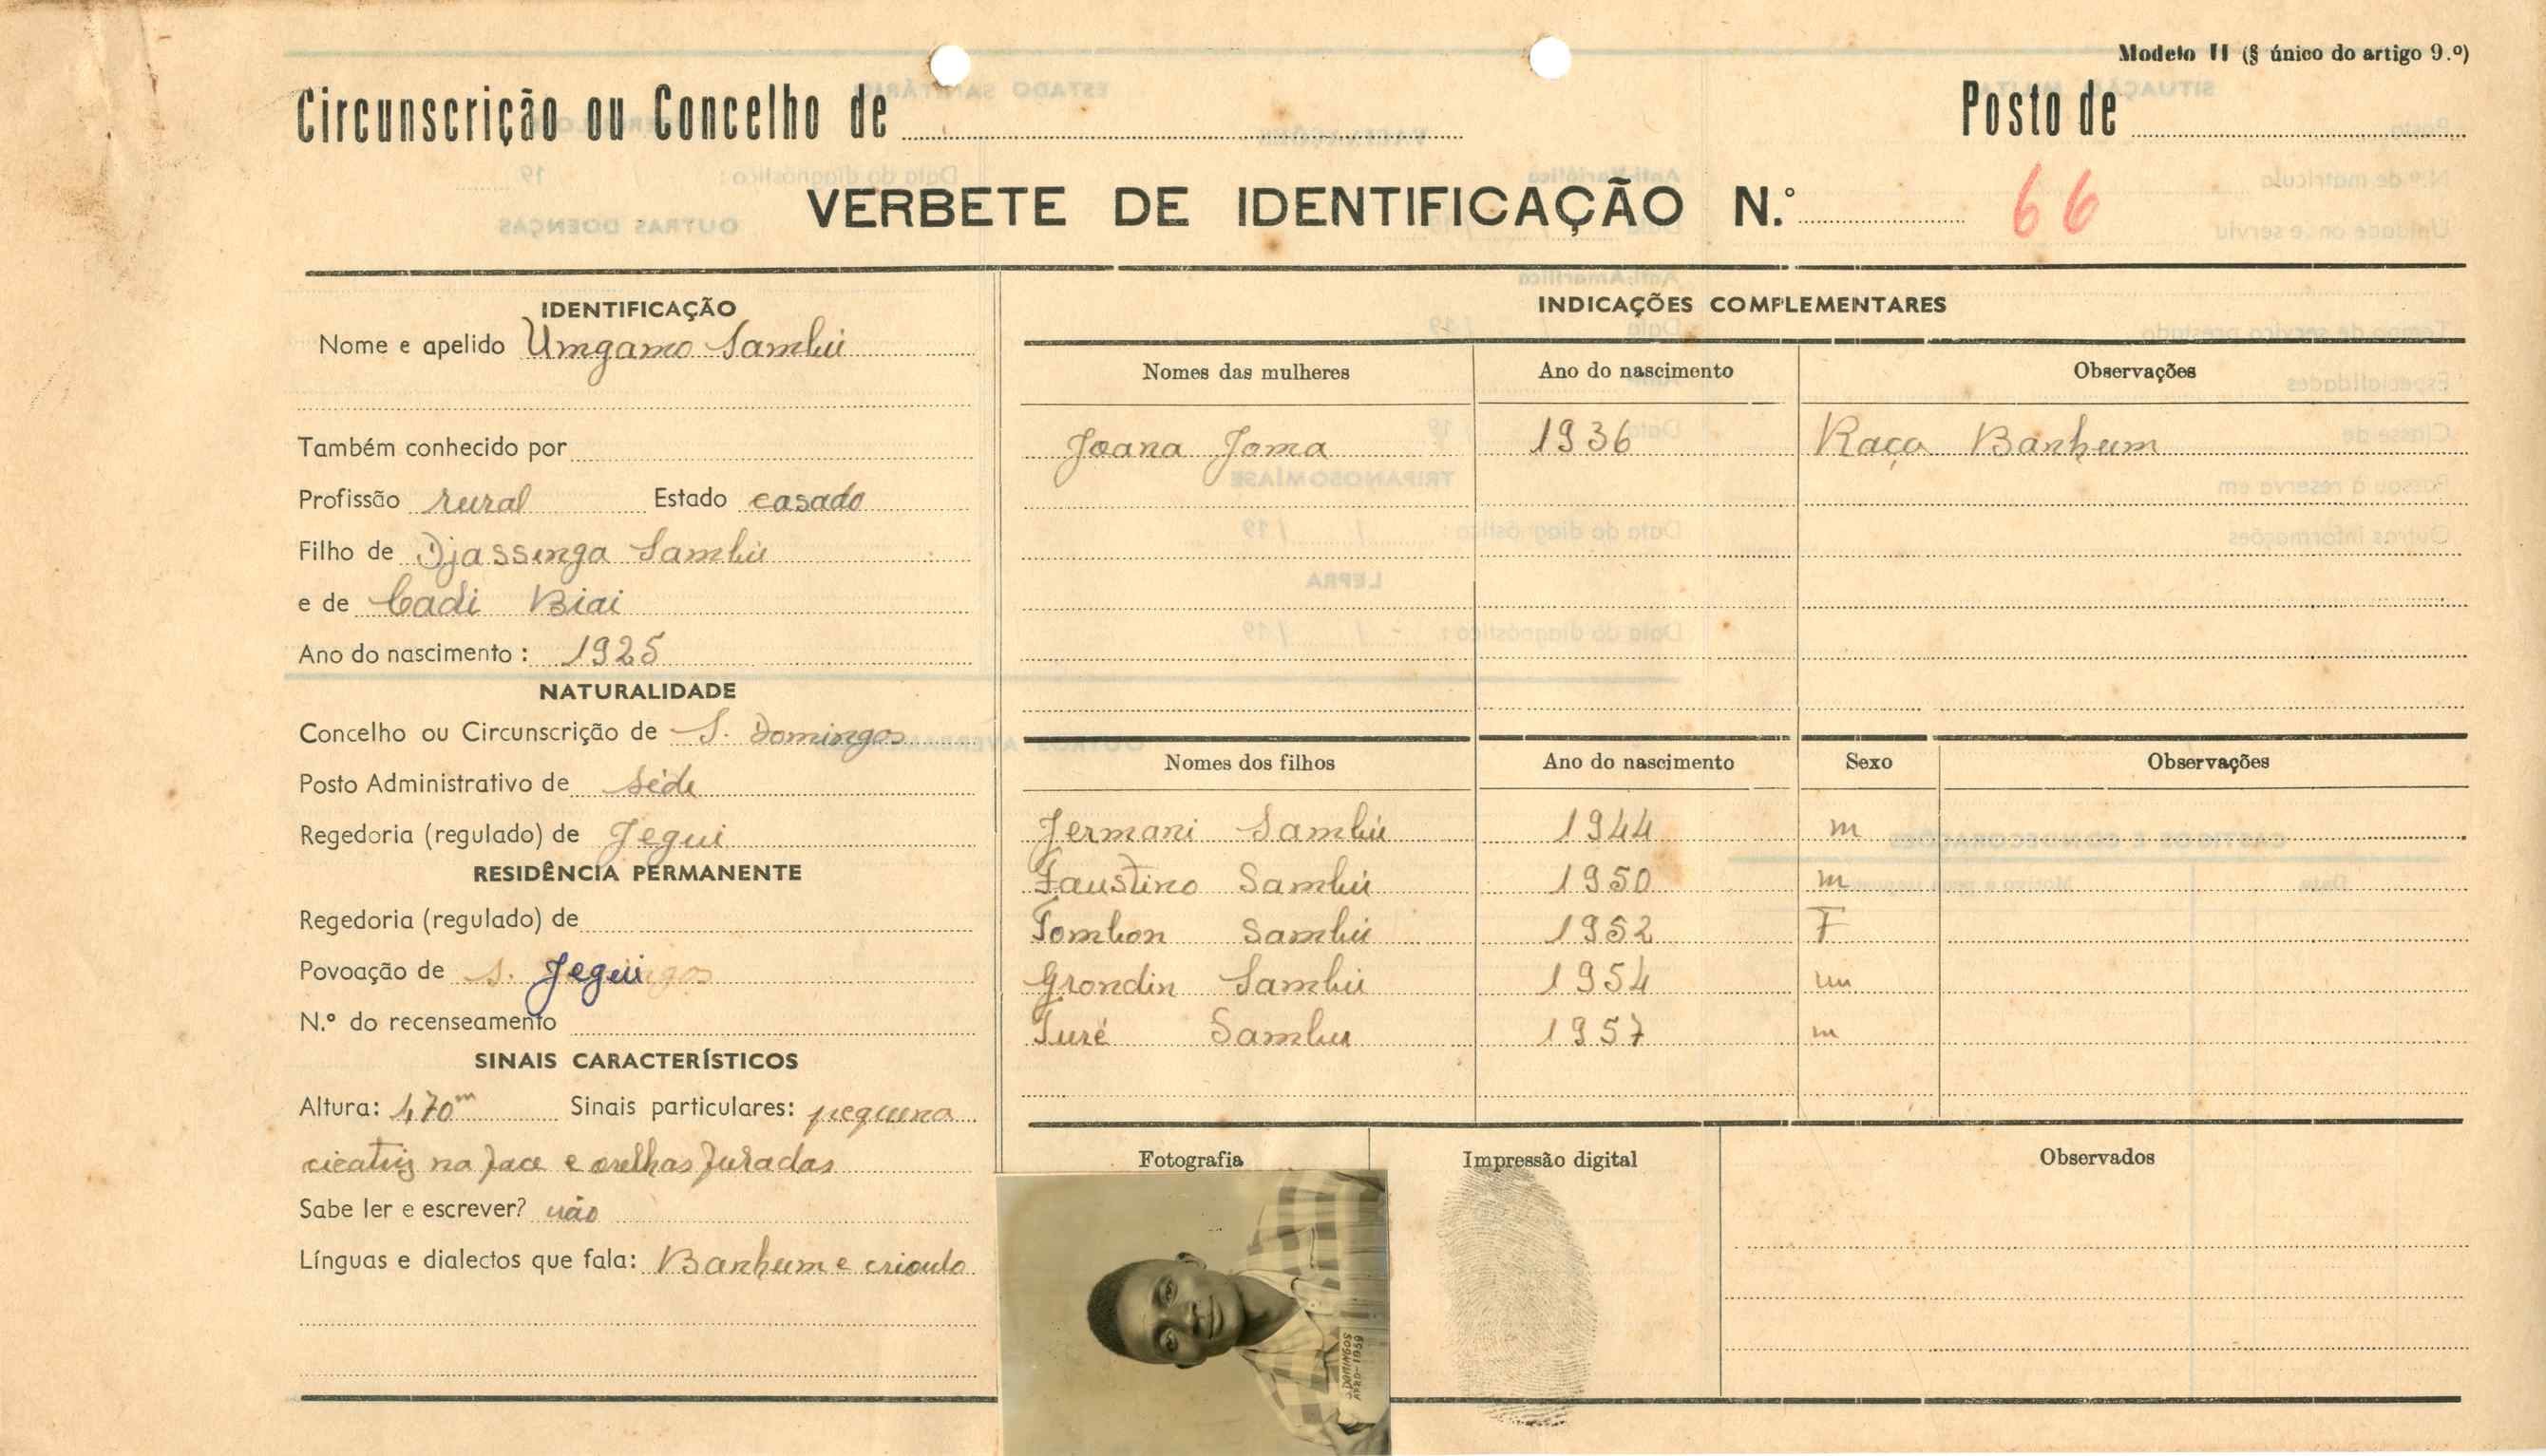 Modelo II (§ único do artigo 9.º)
Circunscrição ou Concelho de
Posto de
VERBETE DE IDENTIFICAÇÃO N.º 66
IDENTIFICAÇÃO
Nome e apelido Umgamo Sambú
Também conhecido por
Profissão rural Estado casado
Filho de Djassinga Sambú
e de Cadi Biai
Ano do nascimento: 1925
NATURALIDADE
Concelho ou Circunscrição de S. Domingos
Posto Administrativo de Séde
Regedoria (regulado) de Jegui
RESIDÊNCIA PERMANENTE
Regedoria (regulado) de
Povoação de S. Jegui
N.º do recenseamento
SINAIS CARACTERÍSTICOS
Altura: 1,70m Sinais particulares: pequena
cicatriz na face e orelhas furadas
Sabe ler e escrever? não
Línguas e dialectos que fala: Banhum e crioulo
INDICAÇÕES COMPLEMENTARES
Nomes das mulheres Ano do nascimento Observações
Joana Joma 1936 Raça Banhum
Nomes dos filhos Ano do nascimento Sexo Observações
Jermani Sambú 1944 m
Faustino Sambú 1950 m
Tombon Sambú 1952 F
Grondin Sambú 1954 m
Turé Sambu 1957 m
Fotografia Impressão digital Observados
DOMINGOS
1959